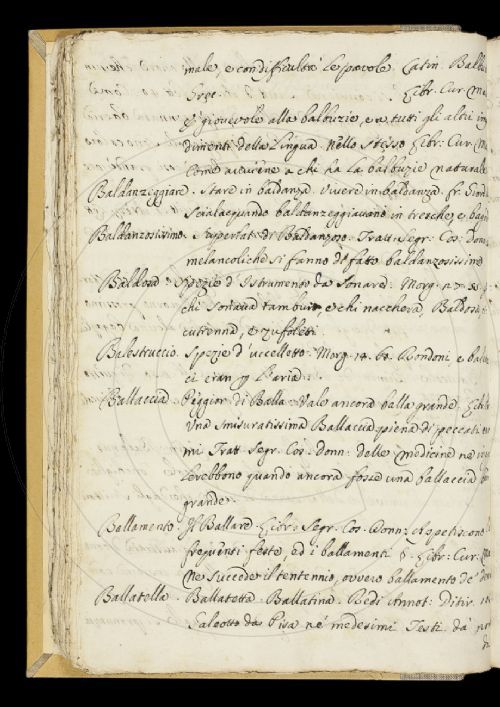 male, e con difficultà le parole. Latin. Balbu
Libr. Cur. Ma
E' giovevole alla balbuzie, e a tutti gli altri im
dimenti della Lingua. Nello stesso Libr: Cur: M
Come avviene a chi ha la balbuzie naturale
Baldanzeggiare. Stare in baldanza. Vivere in baldanza. fr: Giord
baldanzeggiavano in tresche, e
Baldanzosissimo. Superlat: di Baldanzoso. Tratt: Segr: Cos: donn
melancoliche si fanno di fatto baldanzosissime
Baldosa. Spezie d'Istrumento da Sonare. Morg. 27. 55.
chi sonava tamburi, e chi nacchera Baldosa
cutrenna, e zufoletti.
Balestruccio. Spezie d'uccelletto. Morg. 14. 60. Rondoni, e bales
ci eran p l'aria.
Ballaccia Peggior: di Balla. Vale ancora balla grande. Libr
Una smisuratissima Ballaccia piena di peccati
mi Tratt. Segr. Cos: donn: delle medicine ne
lerebbono quando ancora fosse una ballaccia
grande.
Ballamento. Il Ballare. Libr: Segr: Cos. Donn: Appetiscono
frequenti feste, ed i ballamenti. §. Libr: Cur:
Ne succede il tentennio, ovvero ballamento de' den
Ballatella. Ballatetta. Ballatina. Redi Annot: Ditir.
Saleotto da Pisa ne' medesimi Testi da